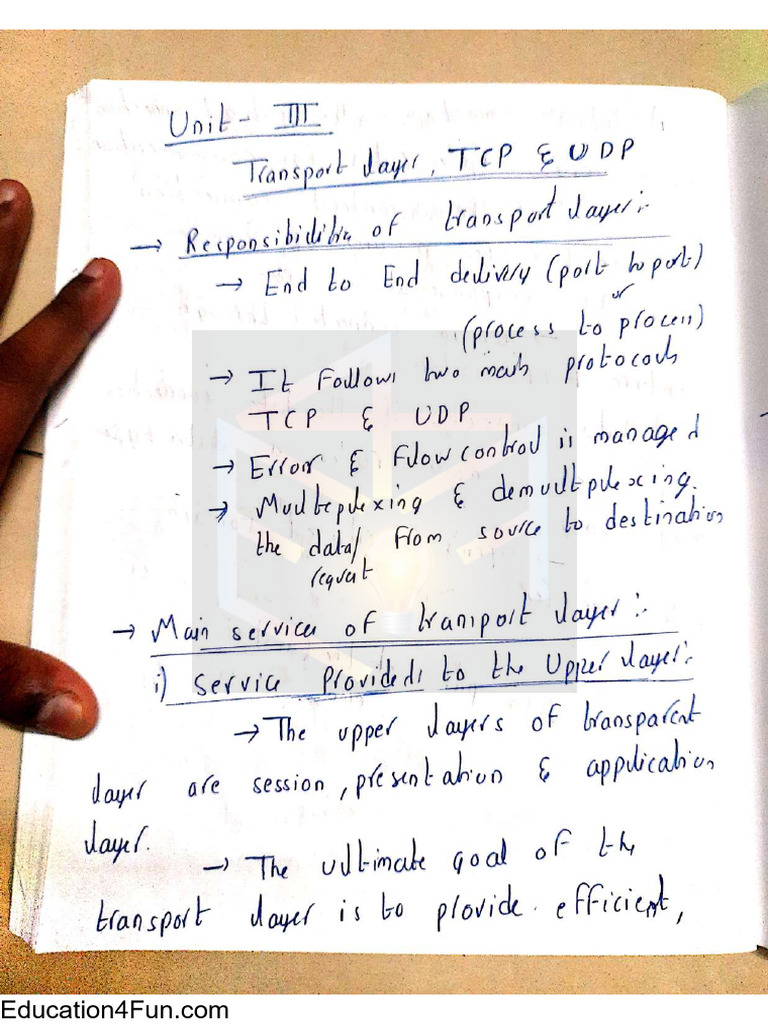 Unit - III
Transport layer, TCP & UDP
→ Responsibilities of transport layer:-
→ End to End delivery (port to port)
or
(process to process)
→ It follows two main protocols
TCP & UDP
→ Error & Flow control is managed
→ Multeplexing & demultiplexing.
the data/ from source to destination
request
→ Main services of transport layer :-
i) Service Provided to the Upper layer:-
→ The upper layers of transparent
layer are session, presentation & application
layer.
→ The ultimate goal of the
transport layer is to provide efficient,
Education4Fun.com